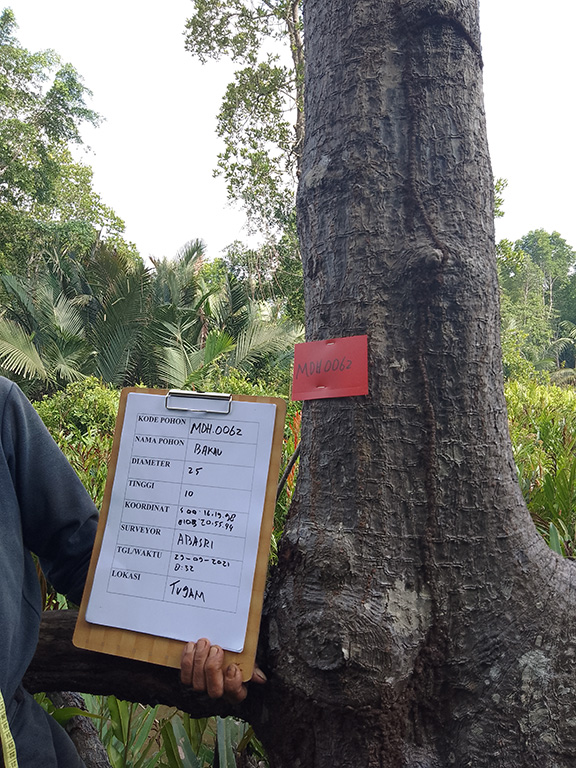 MDH.0062
KODE POHON MDH.0062
NAMA POHON BAKAU
DIAMETER 25
TINGGI 10
KOORDINAT S 00:16.19.98
E108:20.55.94
SURVEYOR ABASRI
TGL/WAKTU 23-09-2021
8:32
LOKASI TUGAM